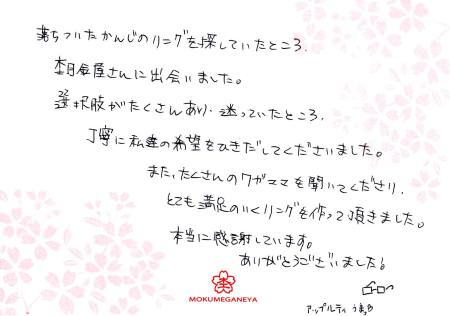 落ちついたかんじのリングを探していたところ、
杢目金屋さんに出会いました。
選択肢がたくさんあり、迷っていたところ、
丁寧に私達の希望をひきだしてくださいました。
また、たくさんのワガママを聞いてくださり、
とても満足のいくリングを作って頂きました。
本当に感謝しています。
ありがとうございました!
MOKUMEGANEYA
アップルティ うまっ